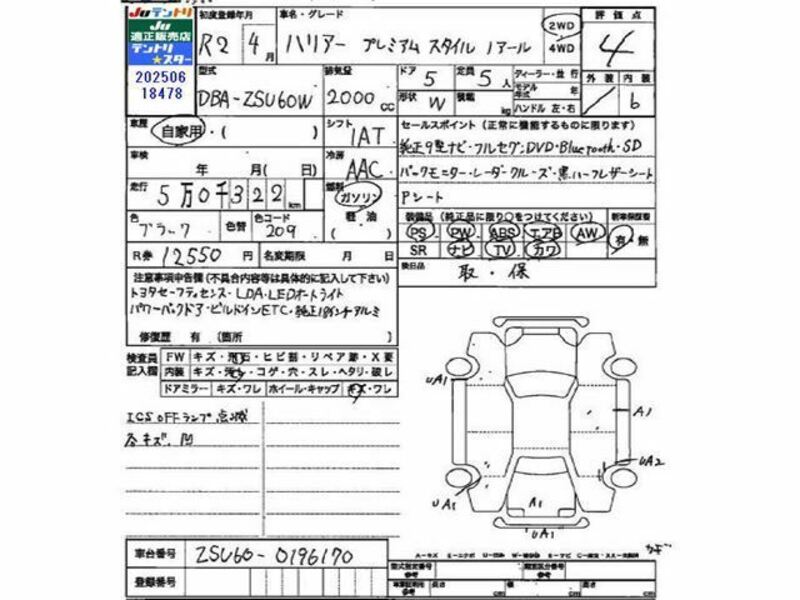 JUテントリ
JU
適正販売店
テントリ
★スター
202506
18478
初度登録年月 車名・グレード 2WD 評価点
R2 4月 ハリアー プレミアム スタイル ノアール 4WD 4
型式 排気量 ドア 定員 ディーラー・並行 外装 内装
DBA-ZSU60W 2000cc 5 5人 モデル 年式 年
形状 W 積載 kg ハンドル 左・右 b
車歴 自家用・( ) シフト IAT セールスポイント (正常に機能するものに限ります)
車検 年 月( 日) 冷房 AAC 純正9型ナビ・フルセグ・DVD・Bluetooth・SD
走行 5万0千322km 燃料 ガソリン 軽油 ( ) パックモニター・レーダークルーズ・黒ハーフレザーシート
Pシート
色 ブラック 色替 色コード 209 装備品 (純正品に限り○をつけてください) 新車保証書
PS PW ABS エアB AW 有・無
R券 12550円 名変期限 月 日 SR ナビ TV カワ
後日品 取・保
注意事項申告欄 (不具合内容等は具体的に記入して下さい)
トヨタセーフティセンス・LDA・LEDオートライト
パワーバックドア・ビルドインETC・純正18インチアルミ
修復歴 有 (箇所 )
検査員記入欄 FW キズ・飛石・ヒビ割・リペア跡・X要
内装 キズ・汚れ・コゲ・穴・スレ・ヘタリ・破レ
ドアミラー キズ・ワレ ホイール・キャップ キズ・ワレ
ICS OFFランプ点滅
各キズ、凹
UA1
A1
UA2
UA1
A1
UA1
車台番号 ZSU60-0196170
登録番号
型式指定番号 参考 類別区分番号 参考
長さ cm 幅 cm 高さ cm